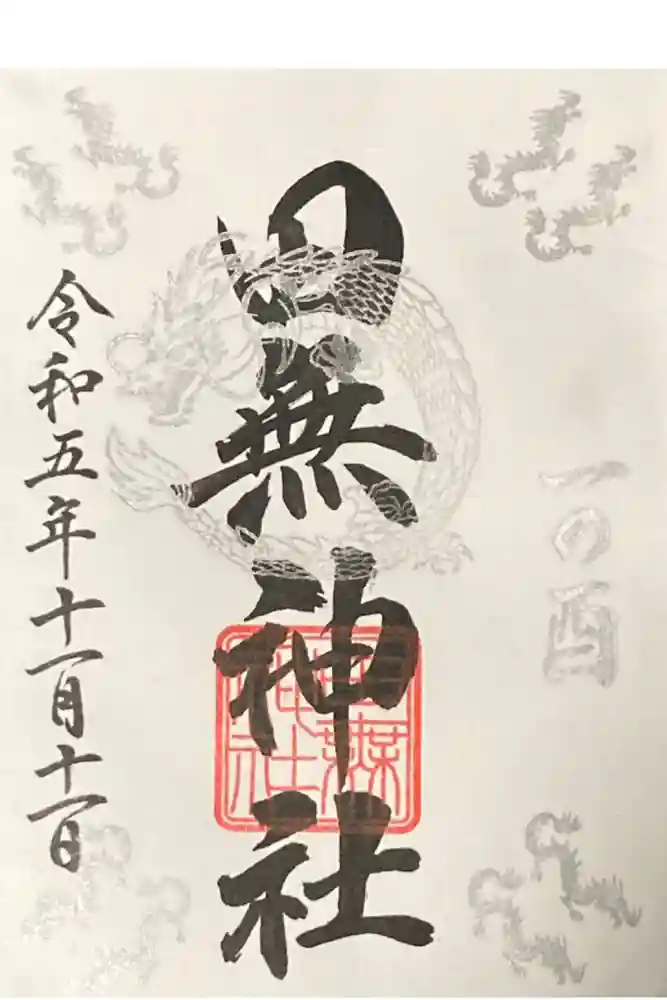 一の酉
田無神社
田無神社
令和五年十一月十一日